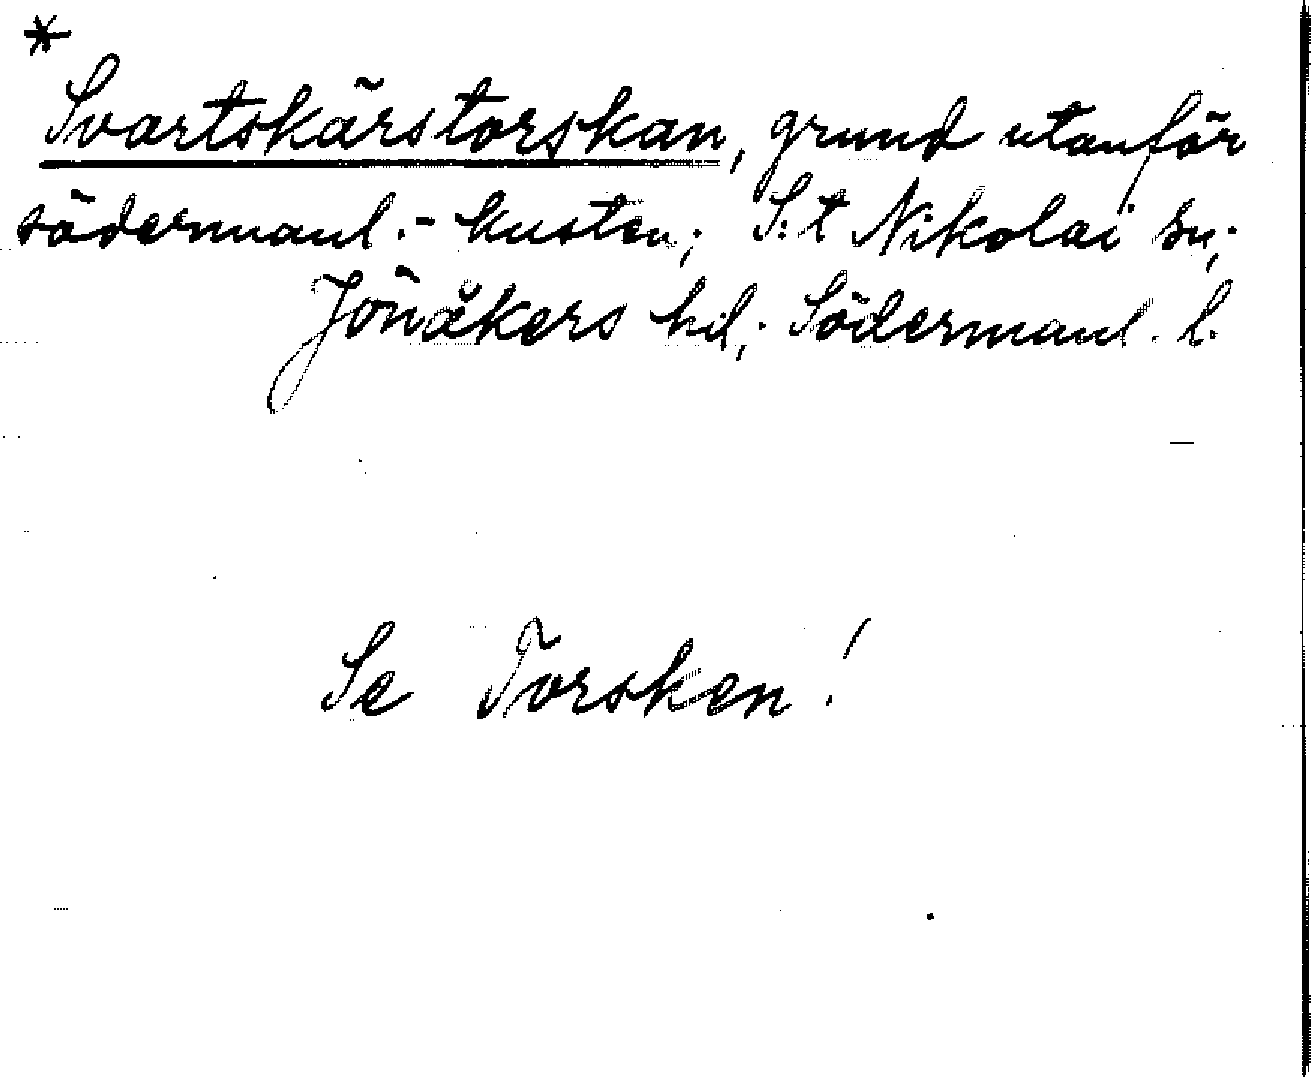 *
Svartskärstorskan, grund utanför
södermanl.-kusten; S:t Nikolai sn;
Jönåkers hd; Södermanl. l.
Se Torsken!